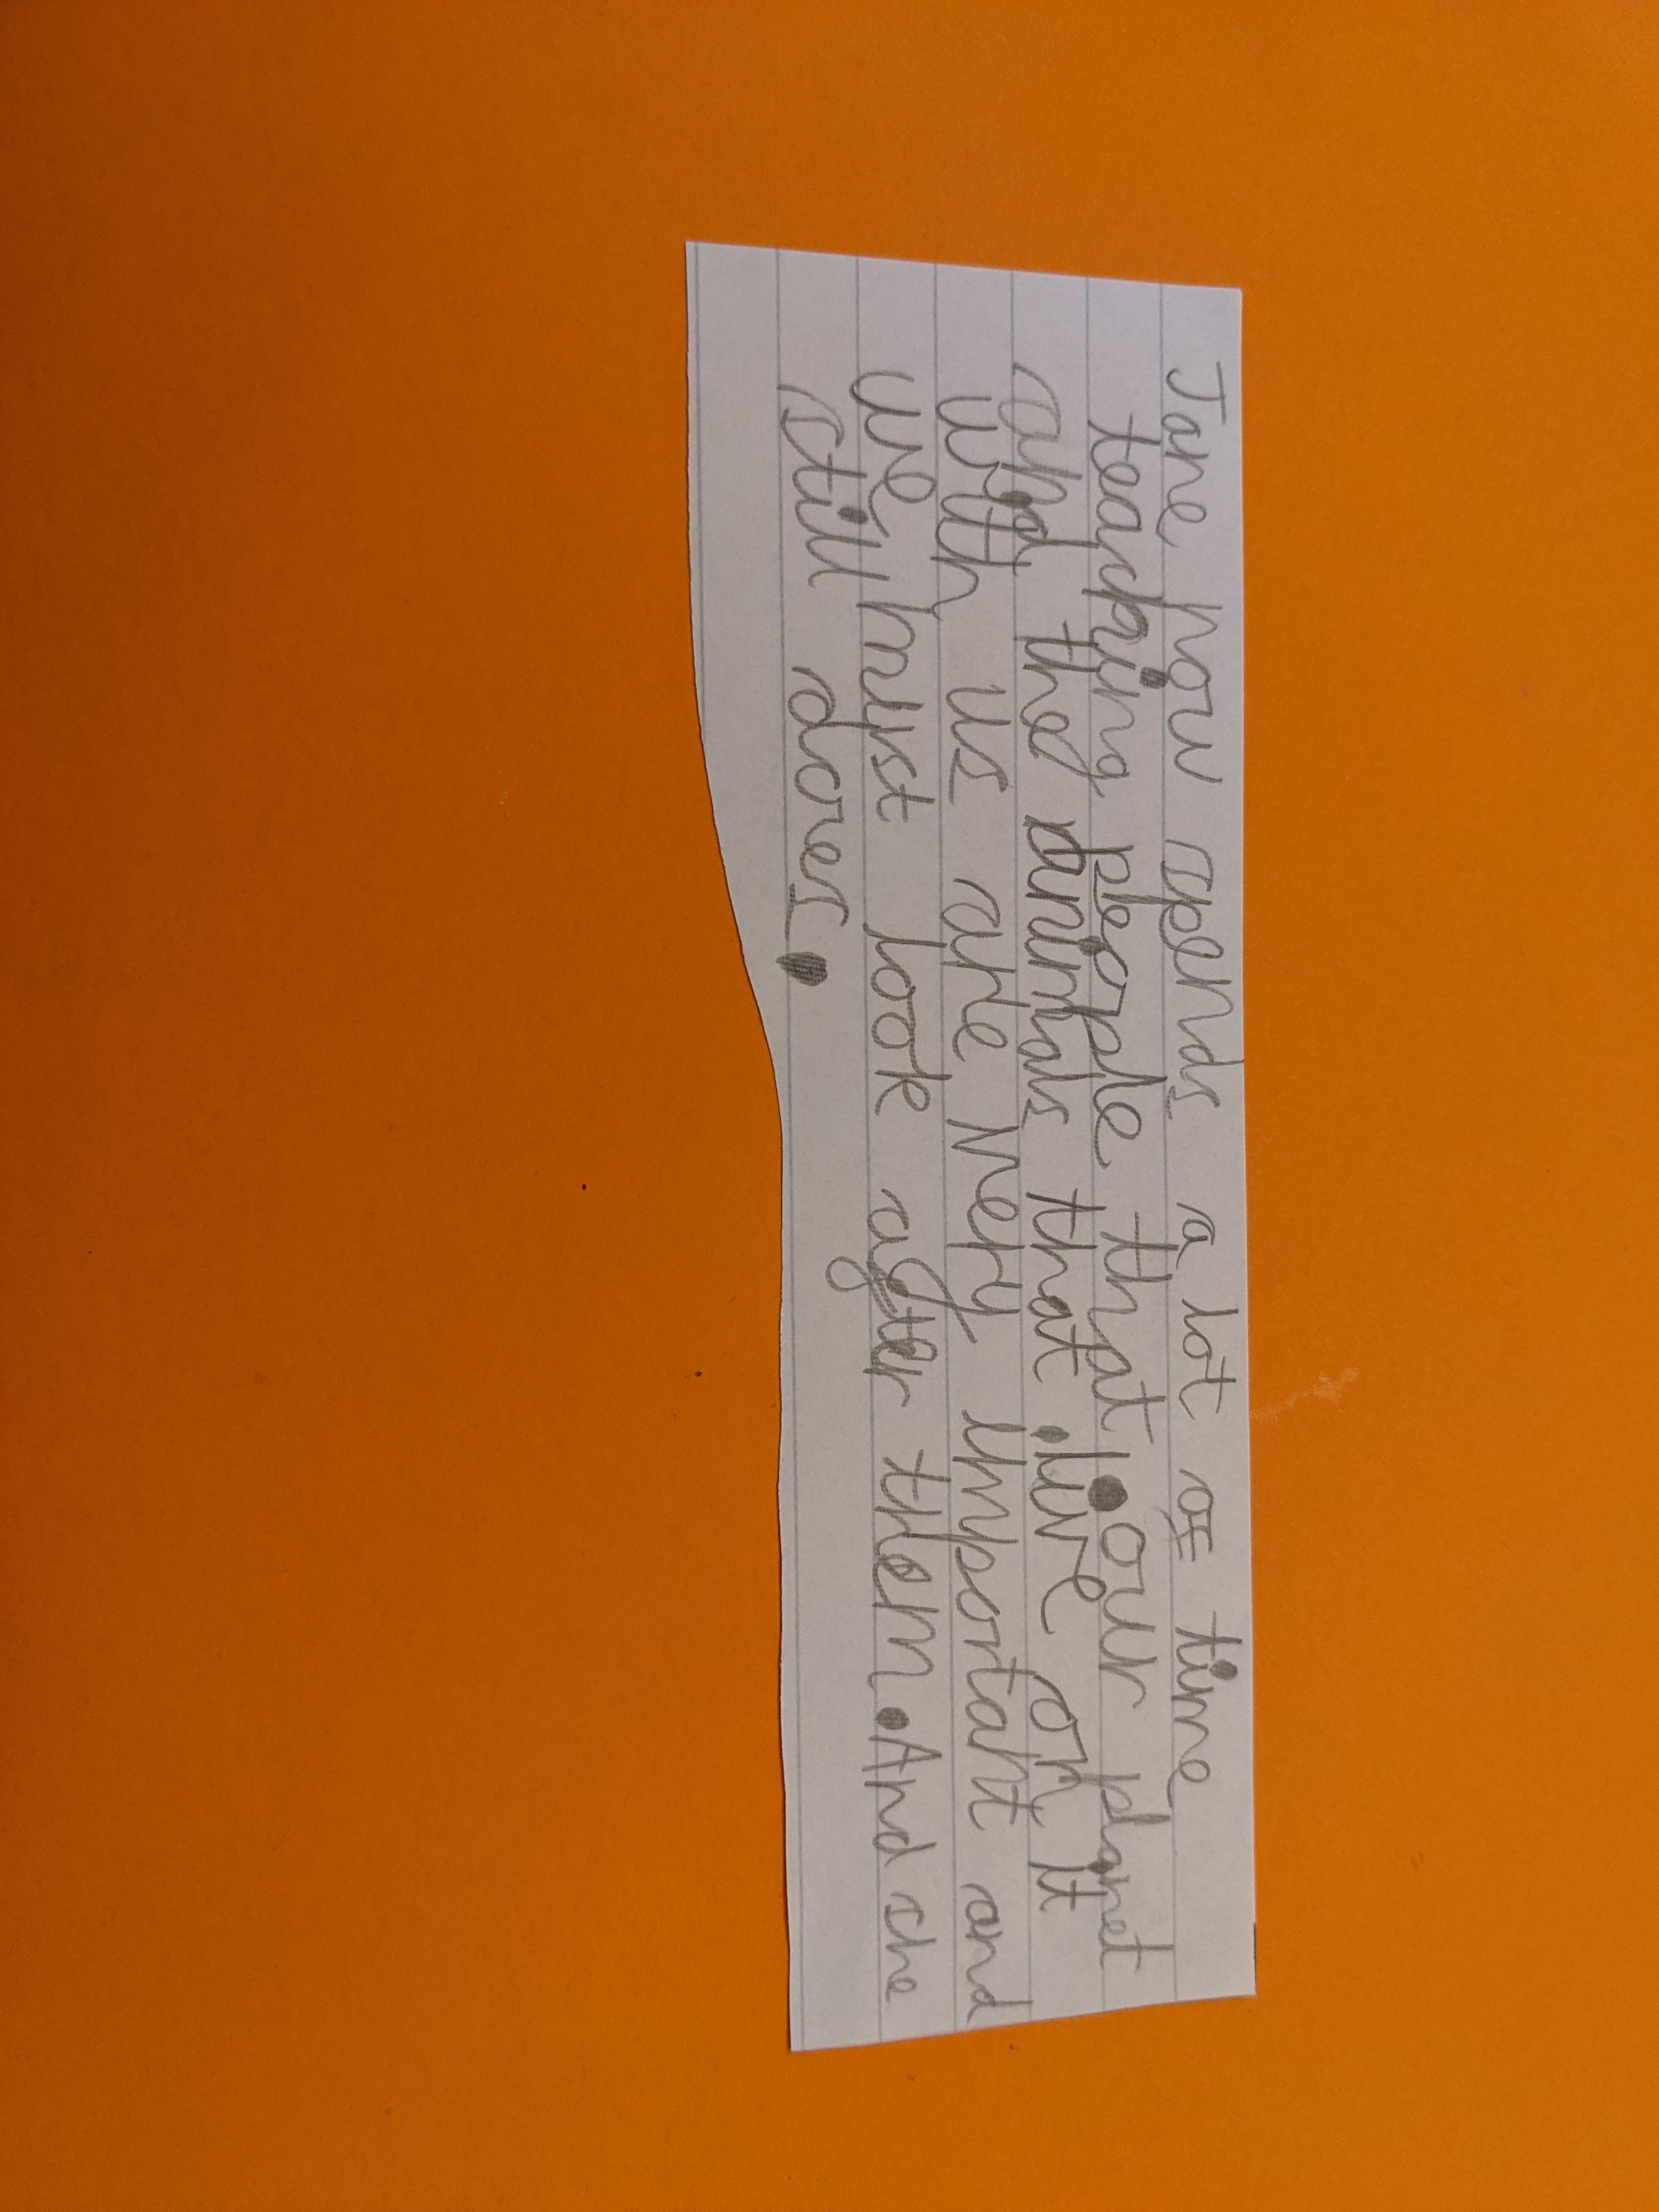 Jane now spends a lot of time
teaching people that our planet
and the animals that live on it
with us are very important and
we must look after them. And she
still does.